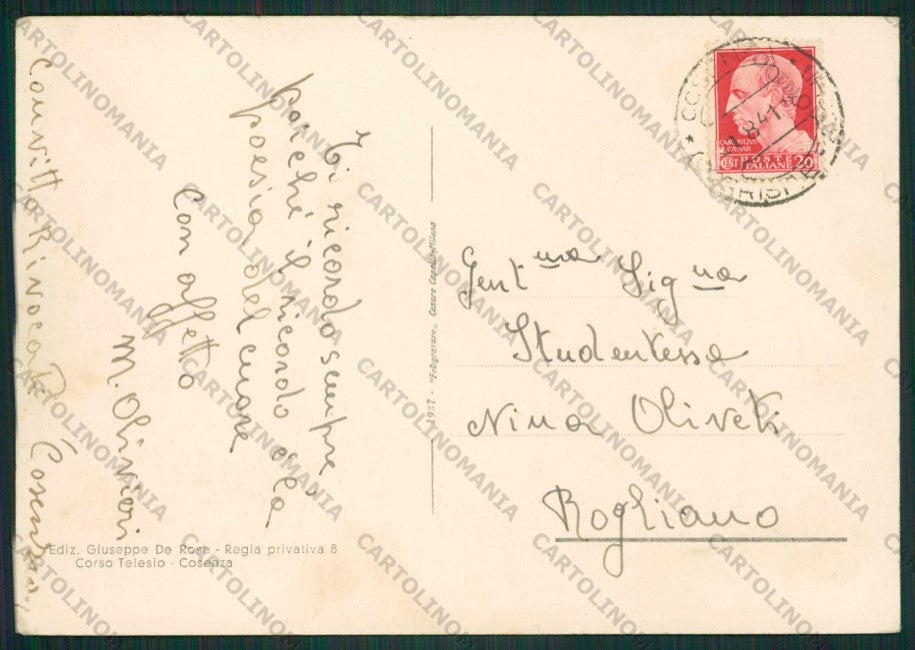 Ti ricordo sempre
poiché il ricordo è la
poesia del cuore
Con affetto
M. Olivieri
Convitto Rivocati Cosenza
Ediz. Giuseppe De Rose - Regia privativa 8
Corso Telesio - Cosenza
1937 - "Fotogravure" Cesare Capello-Milano
CAIO IVLIVS
CAESAR
CENT POSTE 20
ITALIANE
Gent.ma Sig.na
Studentessa
Nina Oliveti
Rogliano
CARTOLINOMANIA